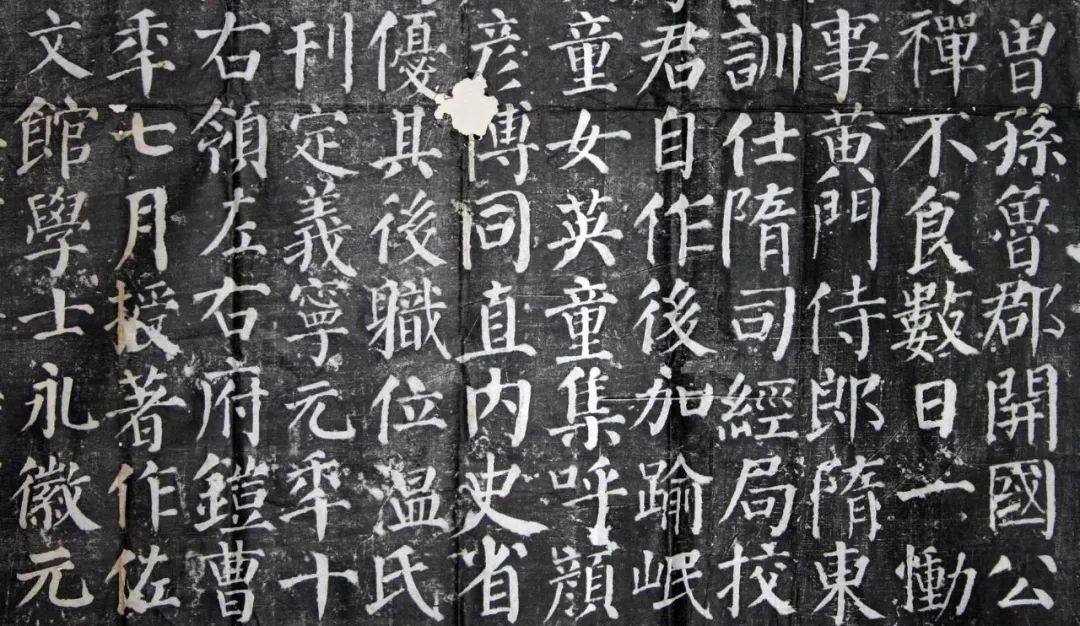 曾孫魯郡開國公
禪不食數日一慟
事黄門侍郎隋東
訓仕隋司經局挍
君自作後加踰岷
童女英童集呼顔
彦博同直内史省
優其後職位温氏
刊定義寧元年十
右領左右府鎧曹
年七月授著作佐
文館學士永徽元